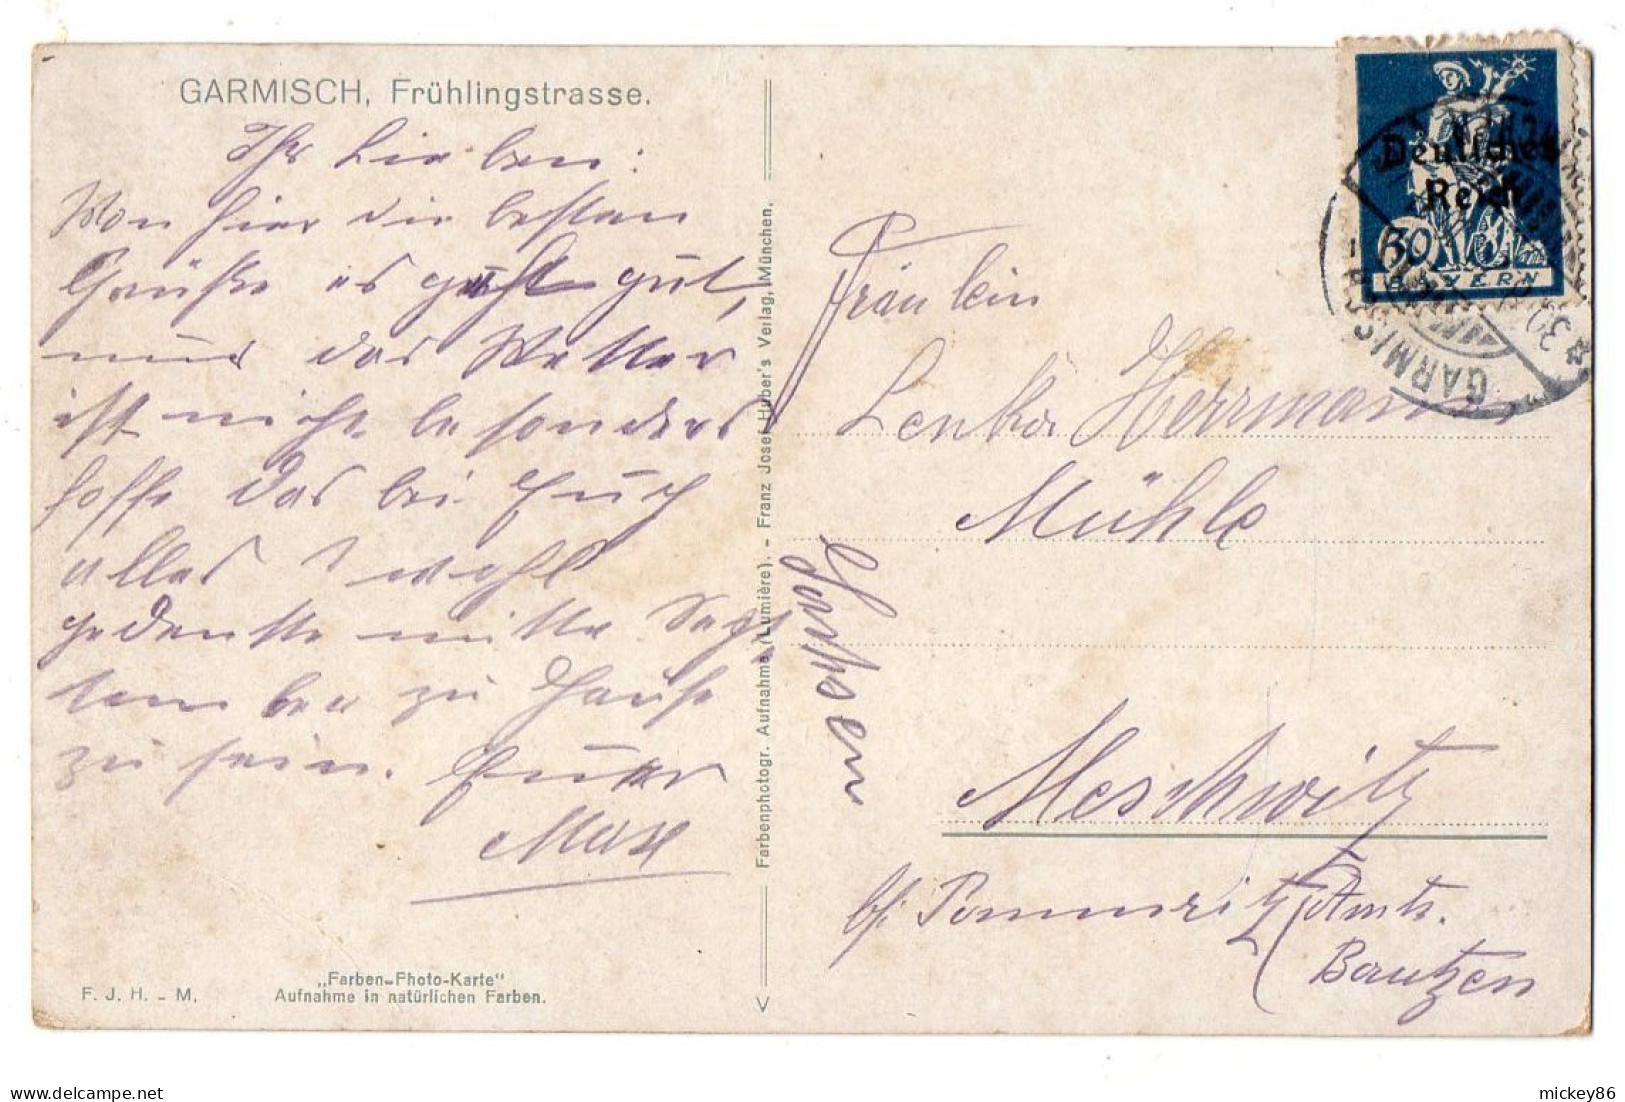 GARMISCH, Frühlingstrasse.
Ihr Lieben:
Von hier die besten
Grüße es geht gut,
nur das Wetter
ist nicht besonders
hoffe das bei Euch
alles wohl
gedenke mitte
zu Hause
zu sein. Euer
Max
„Farben-Photo-Karte"
F. J. H. - M. Aufnahme in natürlichen Farben.
Farbenphotogr. Aufnahme (Lumière). - Franz Josef Huber's Verlag, München.
Deutsches
Reich
30
BAYERN
GARMISCH
Fräulein
Lenka Herrmann
Mühle
Sachsen
Meschwitz
b/. Pommritz (Amts.
Bautzen
mickey86